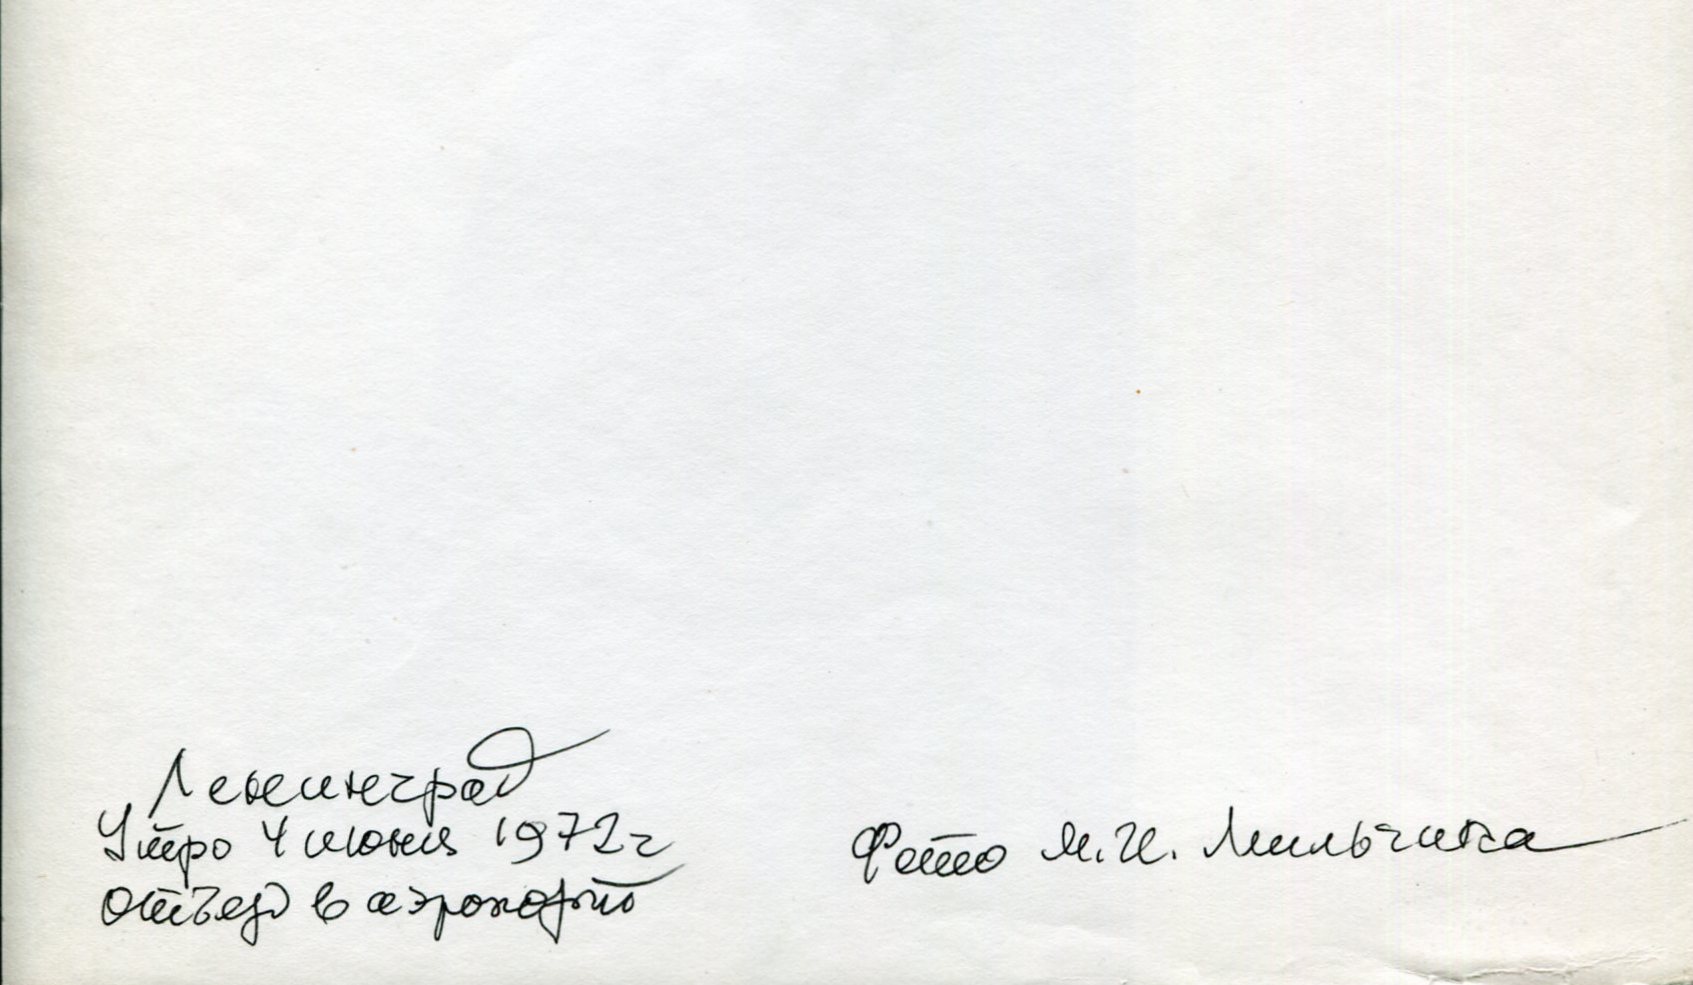 Ленинград
Утро 4 июня 1972 г
отъезд в аэропорт
Фото М.И. Мильчика